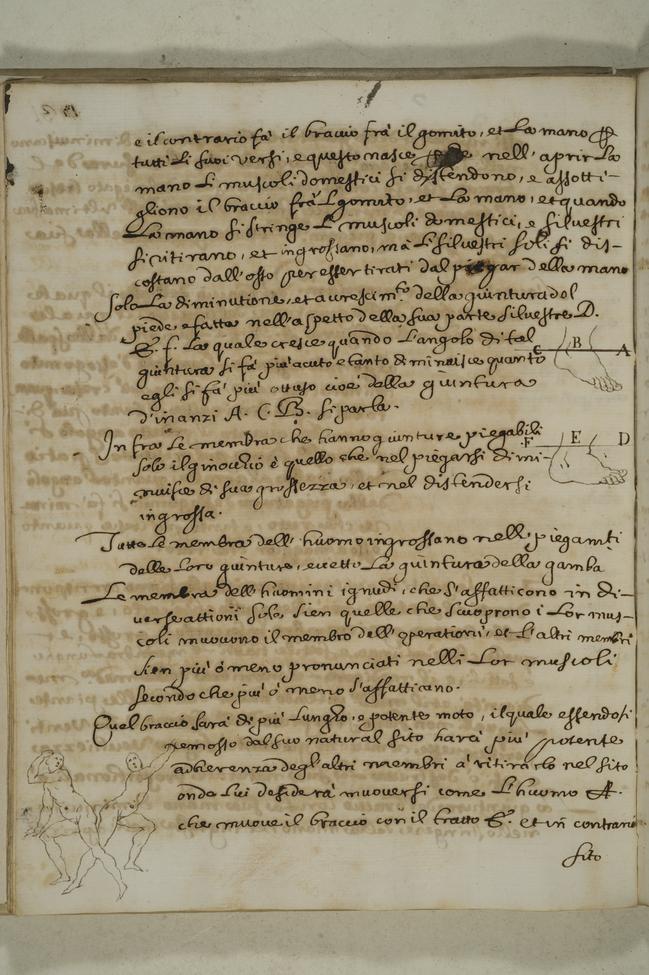 e il contrario fa' il braccio frà il gomito, et La mano p
tutti Li suoi versi, e questo nasce nell' aprir La
mano Li muscoli domestici si distendono, e assotti-
gliono il braccio frà'l gomito, et La mano, et quando
La mano si stringe Li muscoli domestici, e silvestri
si ritirano, et ingrossano, mà Li silvestri soli si dis-
costano dall'osso per esser tirati dal piegar della mano
Solo La diminutione, et accrescim.to della giuntura del
piede e fatta nell'aspetto della sua parte silvestre D.
E. f. La quale cresce quando L'angolo di tal
giuntura si fà più acuto e tanto diminuisce quanto
egli si fà più ottuso cioè della giuntura
d'inanzi A. C. B. si parla.
C B A
In fra Le membra che hanno giunture piegabili
solo il ginocchio è quello che nel piegarsi dimi-
nuisce di sua grossezza, et nel distendersi
ingrossa.
F E D
Tutte Le membra dell' huomo ingrossano nelli piegam.ti
delle Loro giunture, eccetto La giuntura della gamba
Le membra dell'huomini ignudi, che s'affatticono in di-
verse attioni solo sien quelle che scuoprono i Lor mus-
coli muovono il membro dell'operationi, et L'altri membri
sien più ò meno pronunciati nelli Lor muscoli
secondo che più ò meno s'affatticano.
Quel braccio sarà di più Lungho, e potente moto, il quale essendosi
remosso dal suo natural sito harà più potente
adherenza degl'altri membri à ritirarlo nel sito
onde Lui desidera muoversi come L'huomo A.
che muove il braccio con il tratto E. et in contrario
sito